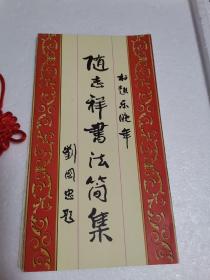 松龄乐晚年
随志祥书法简集
刘国忠题